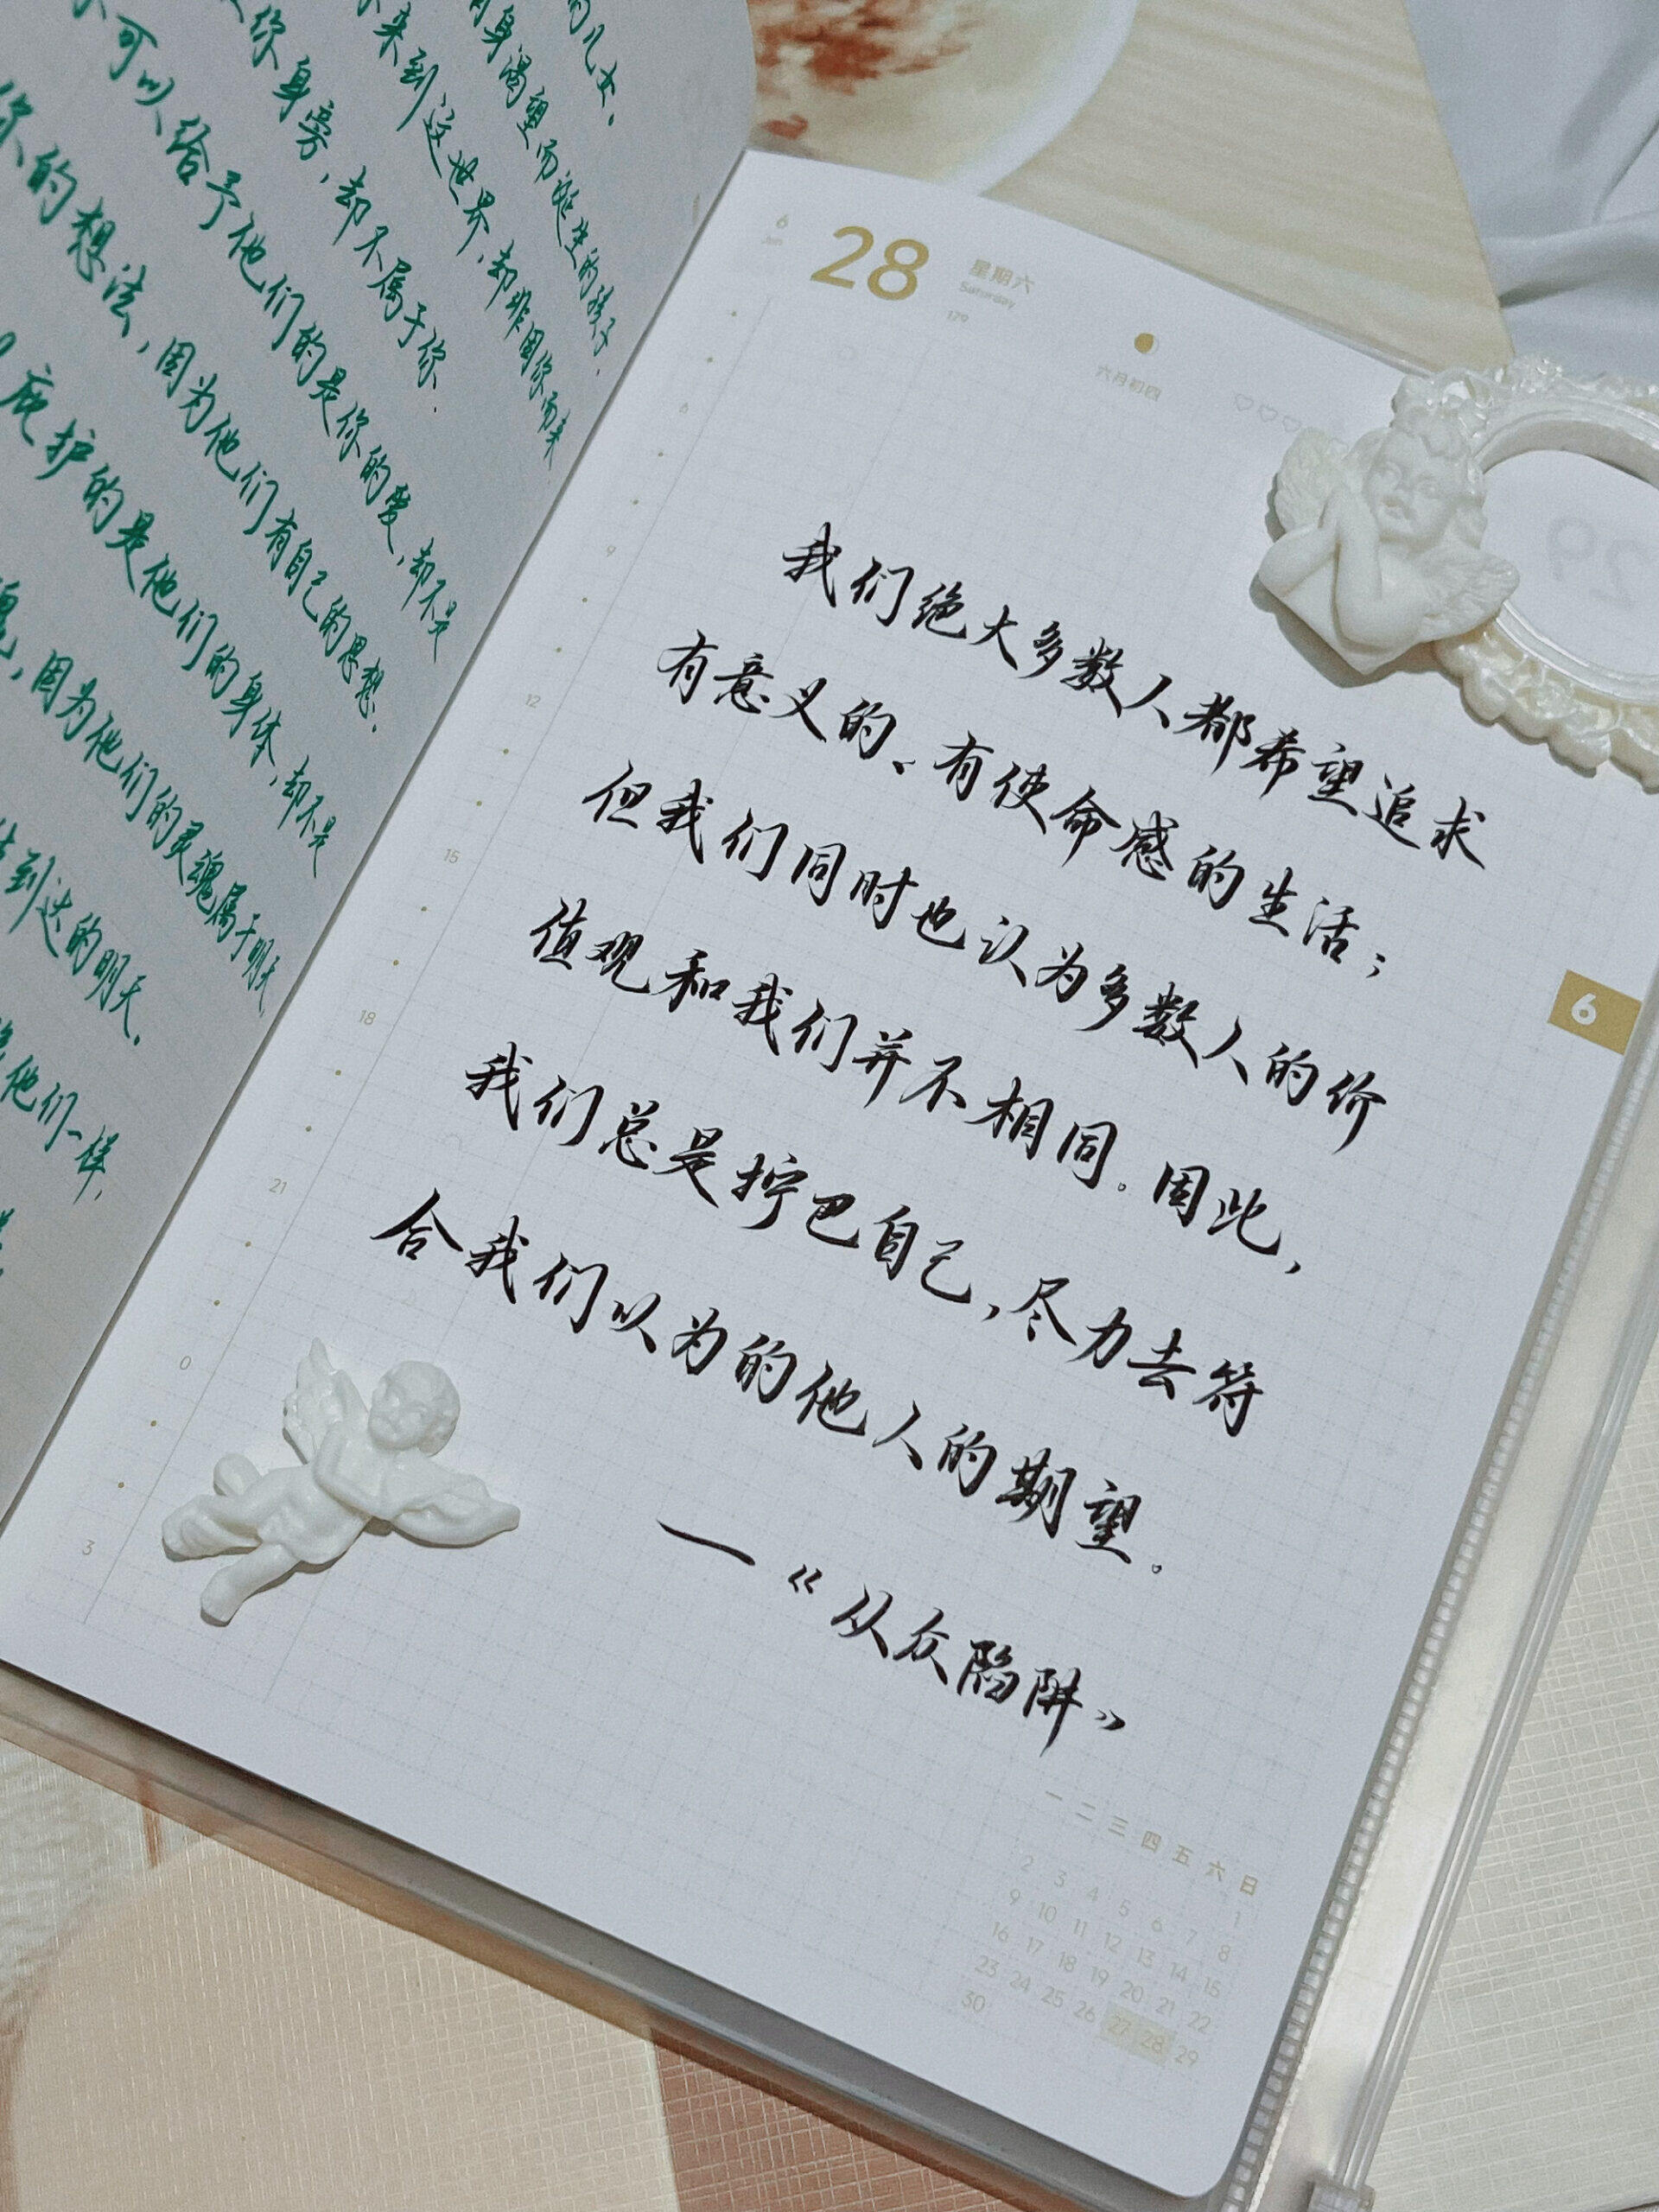 的儿女、
身渴望而诞生的孩子.
来到这世界,却非因你而来
你身旁,却不属于你.
可以给予他们的是你的爱,却不是
你的想法,因为他们有自己的思想.
庇护的是他们的身体,却不是
因为他们的灵魂属于明天
到达的明天.
他们一样,
6
Jun
28
星期六
Saturday
179
六月初四
29
6
9
12
15
18
21
0
3
我们绝大多数人都希望追求
有意义的、有使命感的生活;
但我们同时也认为多数人的价
值观和我们并不相同。因此,
我们总是拧巴自己,尽力去符
合我们以为的他人的期望。
—《从众陷阱》
6
一 二 三 四 五 六 日
1
2 3 4 5 6 7 8
9 10 11 12 13 14 15
16 17 18 19 20 21 22
23 24 25 26 27 28 29
30